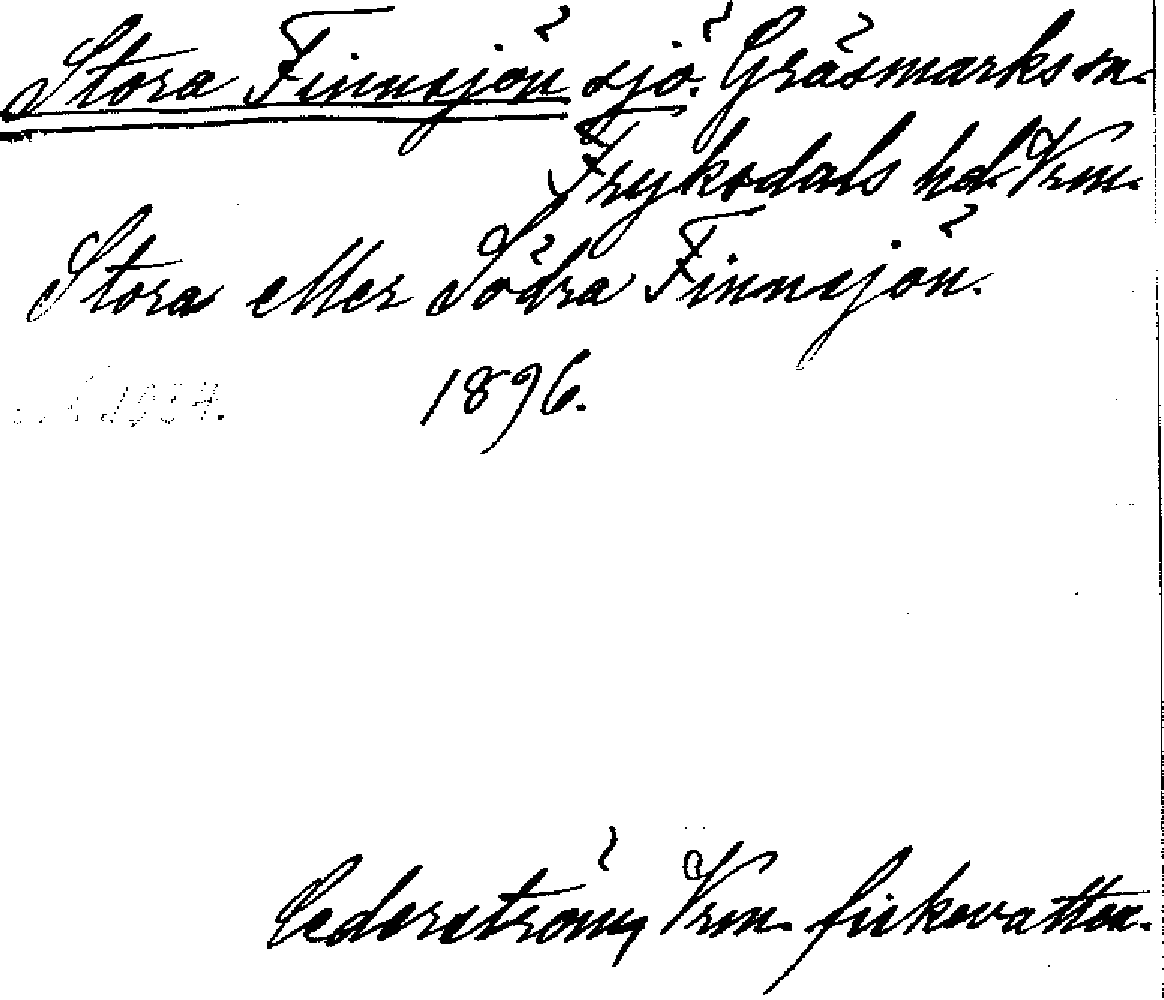 Stora Finnsjön sjö. Gräsmarks sn.
Fryksdals hd. Vrm.
Stora eller Södra Finnsjön.
1896.
Cederström, Vrm. fiskevatten.